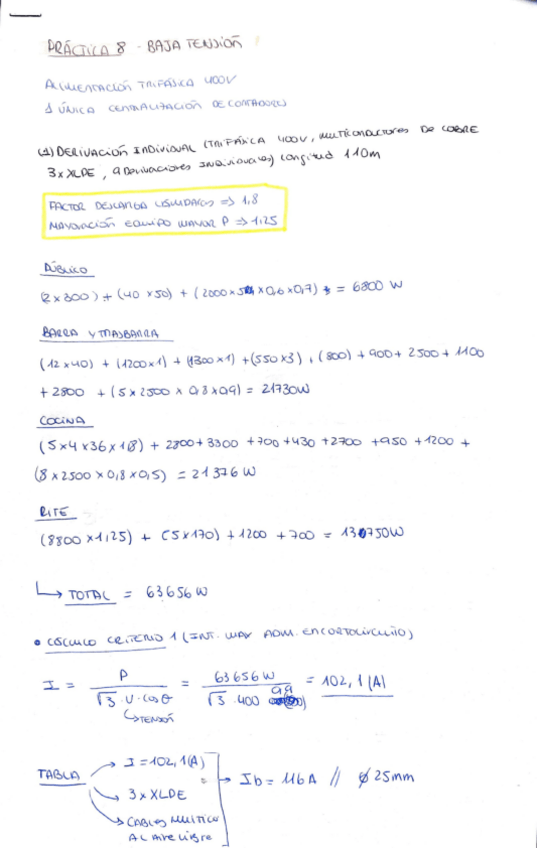 PRÁCTICA 8 - BAJA TENSIÓN
ALIMENTACIÓN TRIFÁSICA 400V
1 ÚNICA CENTRALIZACIÓN DE CONTADORES
(1) DERIVACIÓN INDIVIDUAL (TRIFÁSICA 400V, MULTICONDUCTORES DE COBRE
3xXLPE, 9 Derivaciones Individuales) Longitud 110m
FACTOR DESCARGA LUMINARIAS => 1,8
MAYORACIÓN EQUIPO MAYOR P => 1,25
PÚBLICO
(2 x 300) + (40 x 50) + (2000 x 5 x 0,6 x 0,7) = 6800 W
BARRA Y TRASBARRA
(12 x 40) + (1200 x 1) + (1300 x 1) + (550 x 3) + (800) + 900 + 2500 + 1100
+ 2800 + (5 x 2500 x 0,8 x 0,9) = 21730W
COCINA
(5 x 4 x 36 x 1,8) + 2800 + 3300 + 700 + 430 + 2700 + 950 + 1200 +
(8 x 2500 x 0,8 x 0,5) = 21376 W
RITE
(8800 x 1,25) + (5 x 170) + 1200 + 700 = 13750W
↳ TOTAL = 63656 W
• CÁLCULO CRITERIO 1 (INT. MAX ADM. EN CORTOCIRCUITO)
I = P / √3 · U · cos θ = 63656 W / √3 · 400 0,9 = 102,1 (A)
↳ TENSIÓN
TABLA → I = 102,1 (A)
→ 3 x XLPE → Ib = 116A // ø 25mm
→ CABLES MULTICO
AL AIRE LIBRE